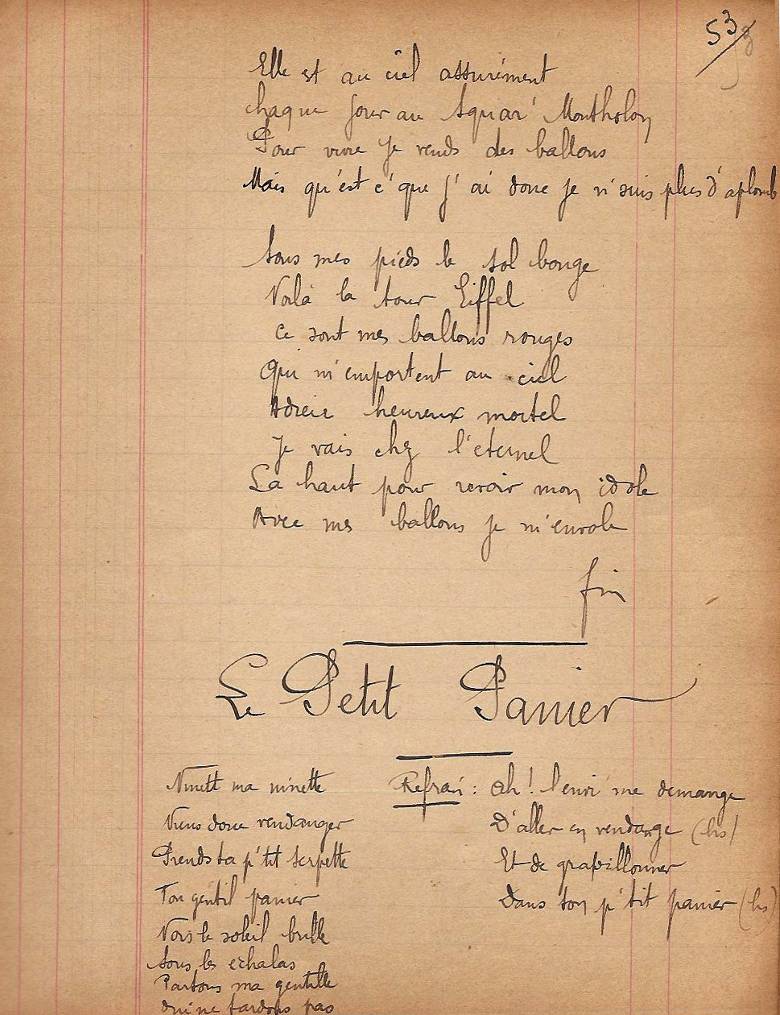 53
Elle est au ciel assurément
chaque jour au squar' Montholon
Pour vivre je vends des ballons
Mais qu'est c'que j'ai donc je n'suis plus d'aplomb
Sous mes pieds le sol bouge
Voilà la tour Eiffel
Ce sont mes ballons rouges
Qui m'emportent au ciel
Adieu heureux mortel
Je vais chez l'eternel
La haut pour revoir mon idole
Avec mes ballons je m'envole
fin
Le Petit Panier
Ninett ma ninette
Viens donc vendanger
Prends ta p'tit serpette
Ton gentil panier
Vois le soleil brille
Sous les echalas
Partons ma gentille
Oui ne tardons pas
Refrai: Ah! l'envi me demange
D'aller en vendange (bis)
Et de grapillonner
Dans ton p'tit panier (bis)